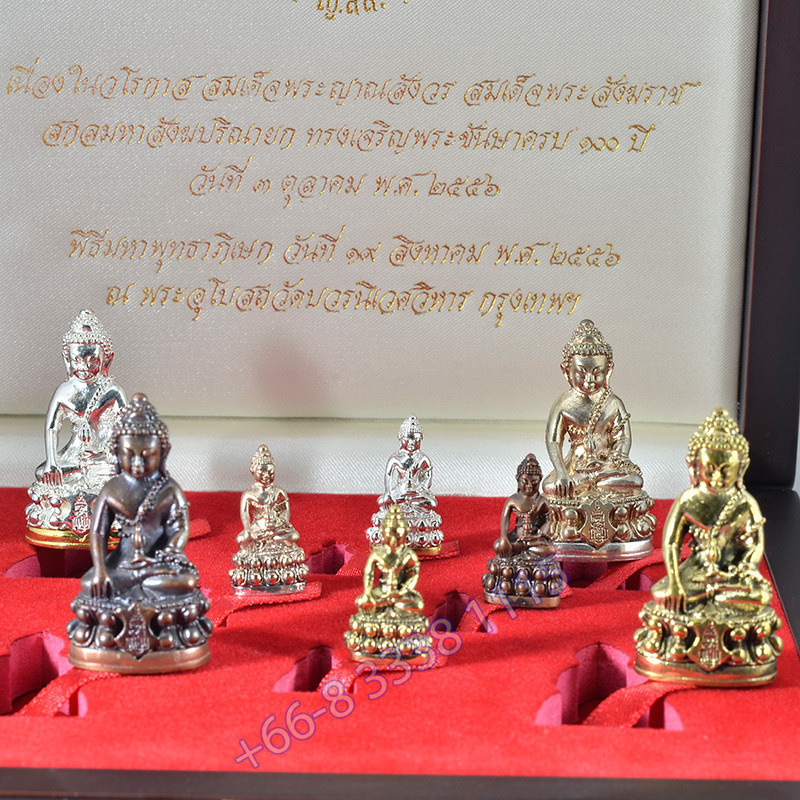 ญ.สส.
เนื่องในวโรกาส สมเด็จพระญาณสังวร สมเด็จพระสังฆราช
สกลมหาสังฆปริณายก ทรงเจริญพระชันษาครบ ๑๐๐ ปี
วันที่ ๓ ตุลาคม พ.ศ. ๒๕๕๖
พิธีมหาพุทธาภิเษก วันที่ ๑๙ สิงหาคม พ.ศ. ๒๕๕๖
ณ พระอุโบสถวัดบวรนิเวศวิหาร กรุงเทพฯ
+66-8 3338 1115